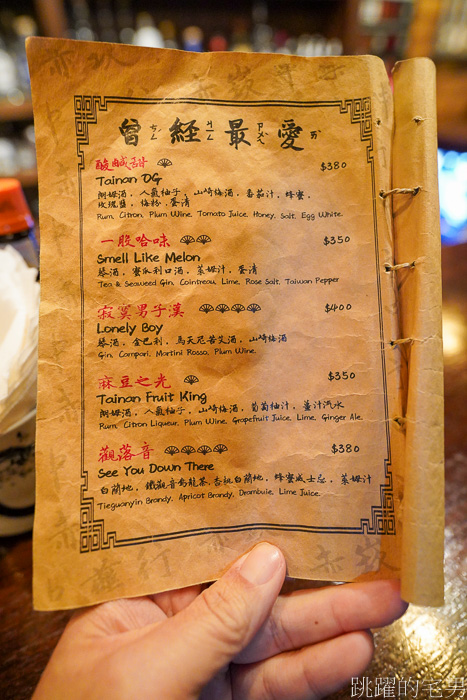 曾ㄘㄥˊ經ㄐㄧㄥ最ㄗㄨㄟˋ愛ㄞˋ
酸鹹甜 $380
Tainan OG
蘭姆酒，人氣柚子，山崎梅酒，番茄汁，蜂蜜，
玫瑰鹽，梅粉，蛋清
Rum, Citron, Plum Wine, Tomato Juice, Honey, Salt, Egg White.
一股哈味 $350
Smell Like Melon
琴酒，蜜瓜利口酒，萊姆汁，蛋清
Tea & Seaweed Gin, Cointreau, Lime, Rose Salt, Taiwan Pepper
寂寞男子漢 $400
Lonely Boy
琴酒，金巴利，馬天尼苦艾酒，山崎梅酒
Gin, Campari, Martini Rosso, Plum Wine,
麻豆之光 $350
Tainan Fruit King
蘭姆酒，人氣柚子，山崎梅酒，葡萄柚汁，薑汁汽水
Rum, Citron Liqueur, Plum Wine, Grapefruit Juice, Lime, Ginger Ale.
觀落音 $380
See You Down There
白蘭地，鐵觀音烏龍茶，杏桃白蘭地，蜂蜜威士忌，萊姆汁
Tieguanyin Brandy, Apricot Brandy, Drambuie, Lime Juice.
跳躍的宅男